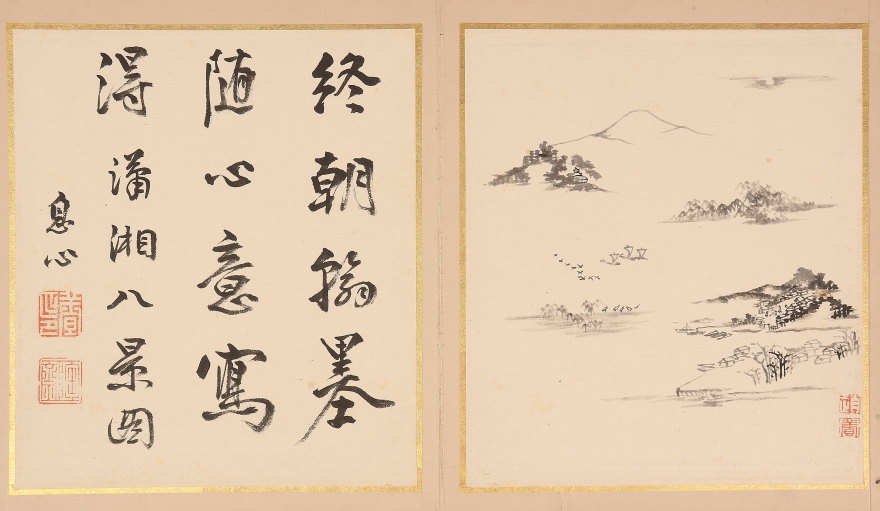 終朝翰墨
随心意寫
得瀟湘八景図
息心